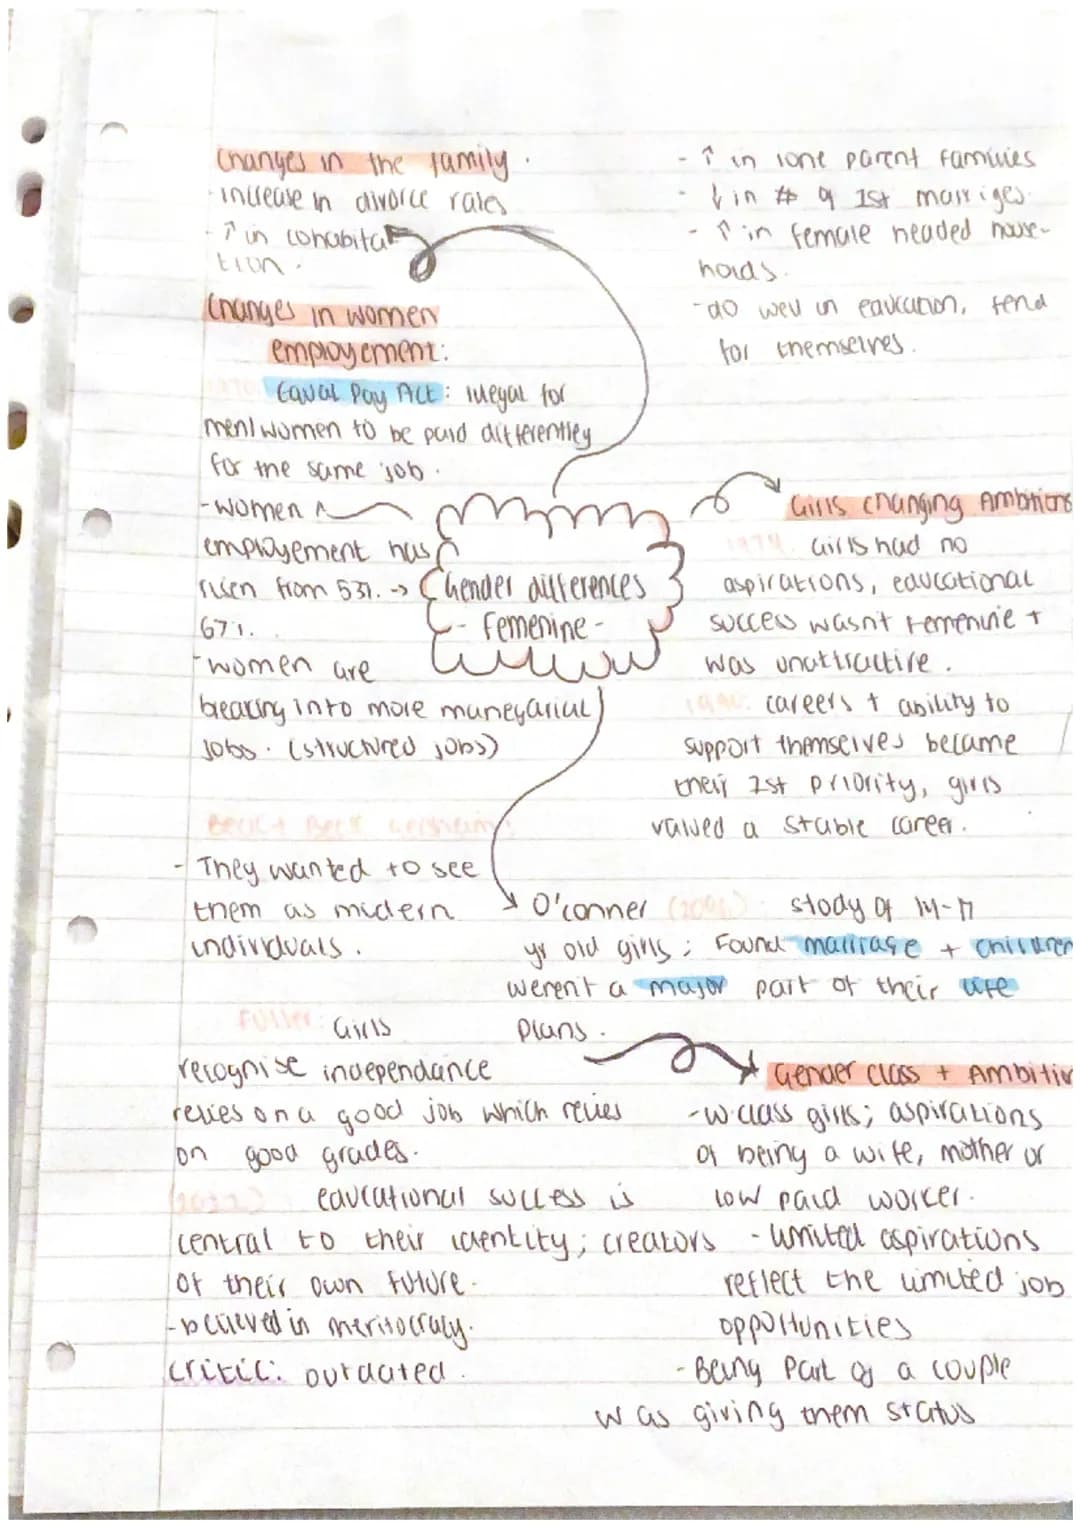 Changes in the family.
- increase in divorce rates
- ↑ in cohabita
tion.
- ↑ in lone parent families
- ↓ in # of 1st marriges.
- ↑ in female headed house-
holds.
- do well in education, fend
for themselves.
Changes in women
employement:
1970 Equal Pay Act: illegal for
men/women to be paid differentley
for the same job.
- women
employement has
risen from 53%. ->
67%.
- women are
breaking into more manegarial
jobs. (structured jobs)
Gender differences
- Femenine -
Girls changing Ambitions
1974. Girls had no
aspirations, educational
success wasn't femenine +
was unattractive.
1990: careers + ability to
support themselves became
their 1st priority, girls
valued a stable career.
Beck + Beck Gersheim:
- They wanted to see
them as modern
individuals.
O'conner (2006): stody of 14-17
yr old girls; Found marriage + children
werent a major part of their life
plans.
Fuller: Girls
recognise independance
relies on a good job which relies
on good grades.
educational success is
central to their identity; creators
of their own future.
- believed in meritocracy.
critic: outdated.
Gender class + Ambition
- w.class girls; aspirations
of being a wife, mother or
low paid worker.
- limited aspirations
reflect the limited job
opportunities
- Being part of a couple
was giving them status